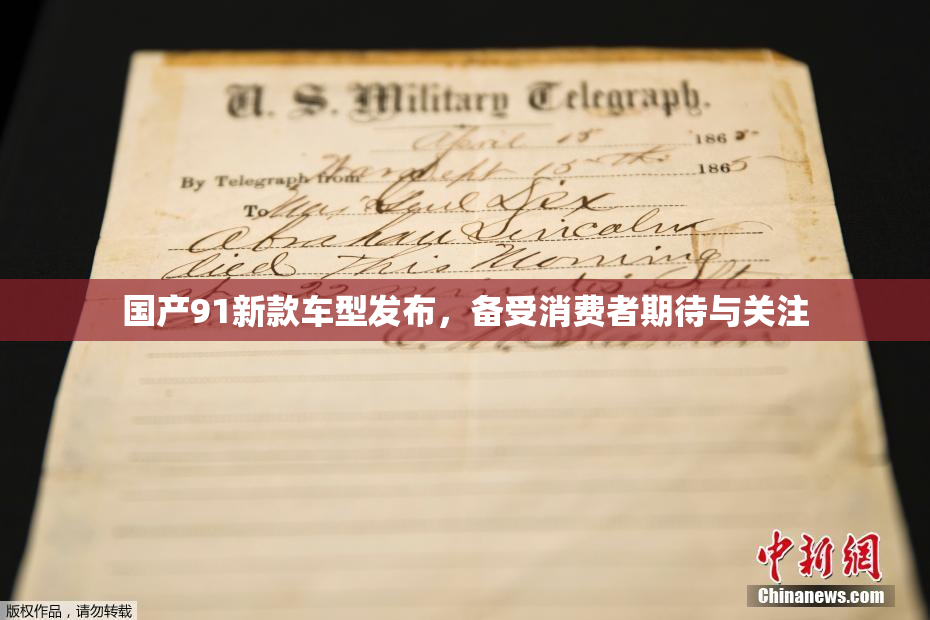 U. S. Military Telegraph.
April 15 1865
By Telegraph from War Dept 15th 1865
To Maj Genl Dix
Abraham Lincoln
died This Morning
22 minutes after
国产91新款车型发布，备受消费者期待与关注
中新网
Chinanews.com
版权作品，请勿转载